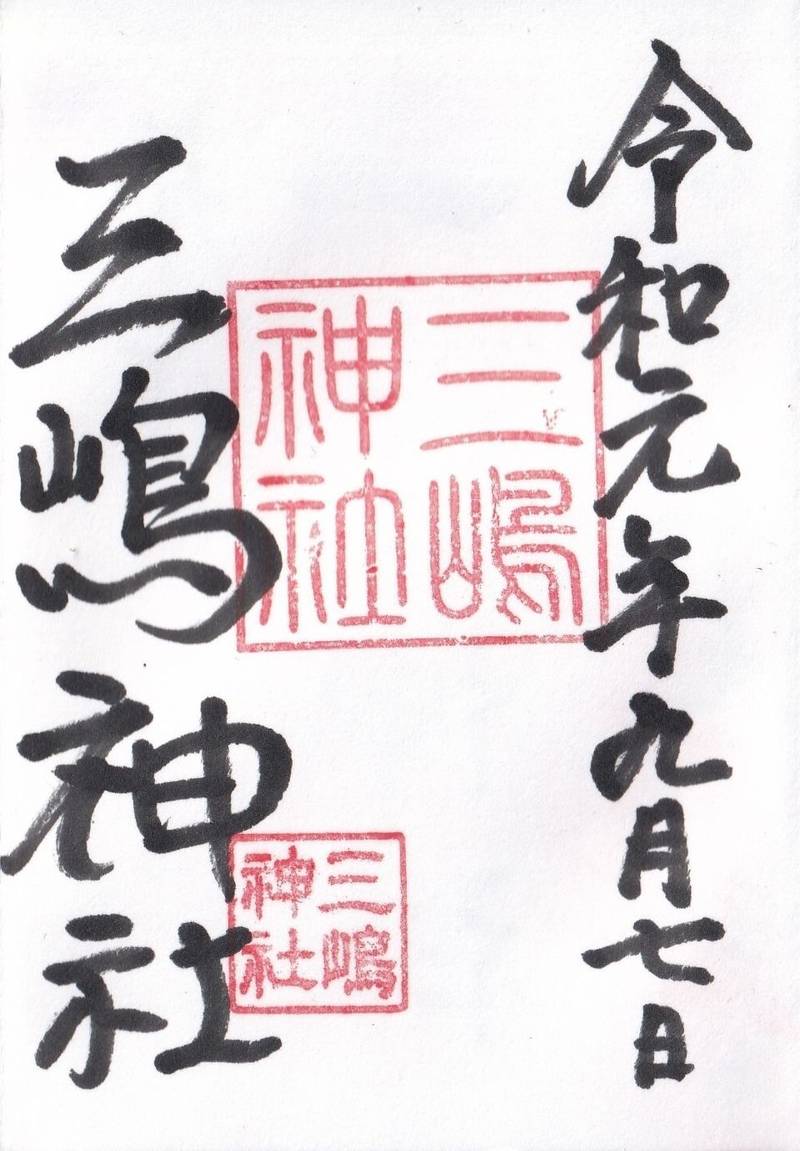 令和元年九月七日
三嶋
神社
三嶋神社
三嶋
神社